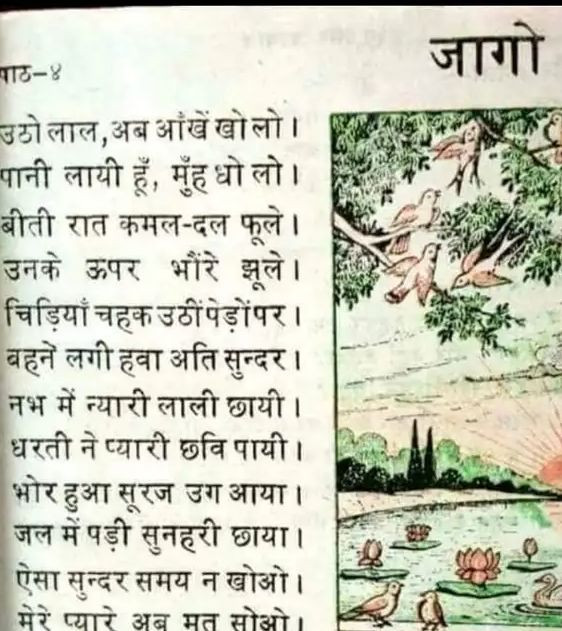 जागो
पाठ-४
उठो लाल, अब आँखें खोलो।
पानी लायी हूँ, मुँह धो लो।
बीती रात कमल-दल फूले।
उनके ऊपर भौंरे झूले।
चिड़ियाँ चहक उठीं पेड़ों पर।
बहने लगी हवा अति सुन्दर।
नभ में न्यारी लाली छायी।
धरती ने प्यारी छवि पायी।
भोर हुआ सूरज उग आया।
जल में पड़ी सुनहरी छाया।
ऐसा सुन्दर समय न खोओ।
मेरे प्यारे अब मत सोओ।